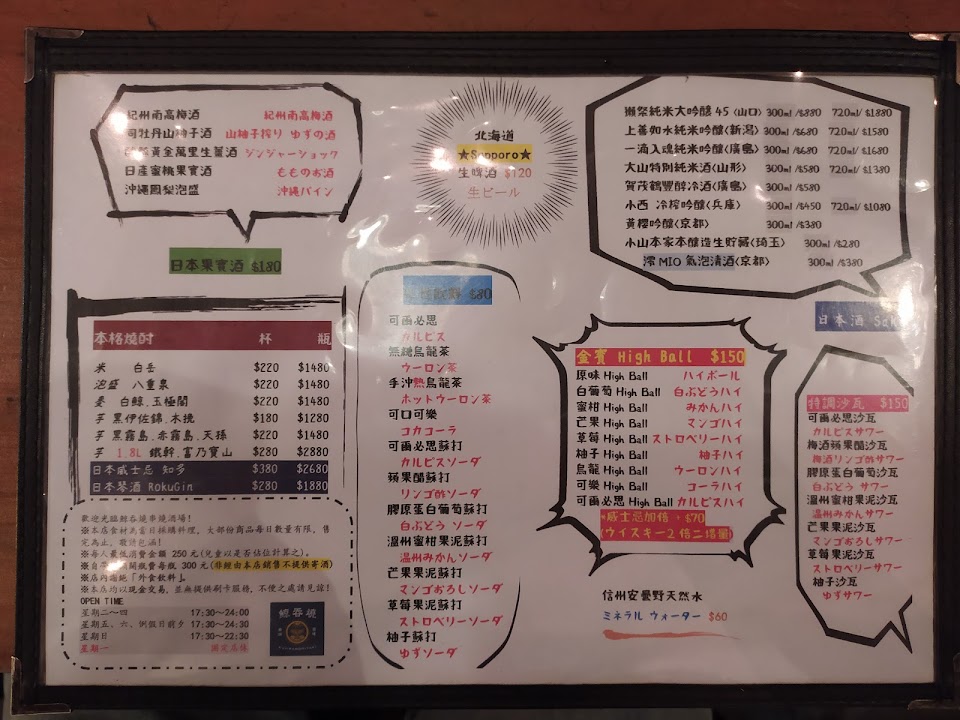 紀州南高梅酒 紀州南高梅酒
司牡丹山柚子酒 山柚子搾り ゆずの酒
黃金萬里生薑酒 ジンジャーショック
日產蜜桃果實酒 もものお酒
沖繩鳳梨泡盛 沖縄パイン
日本果實酒 $180
北海道
★Sapporo★
生啤酒 $120
生ビール
獺祭純米大吟釀 45(山口) 300ml/$880 720ml/$1880
上善如水純米吟釀(新潟) 300ml/$680 720ml/$1580
一滴入魂純米吟釀(廣島) 300ml/$680 720ml/$1680
大山特別純米酒(山形) 300ml/$580 720ml/$1380
賀茂鶴豐醇冷酒(廣島) 300ml/$580
小西 冷榨吟釀(兵庫) 300ml/$450 720ml/$1080
黃櫻吟釀(京都) 300ml/$380
小山本家本釀造生貯藏(琦玉) 300ml/$280
澪 MIO 氣泡清酒(京都) 300ml/$380
日本酒
本格燒酎 杯 瓶
米 白岳 $220 $1480
泡盛 八重泉 $220 $1480
麥 白鯨.玉極閣 $220 $1480
芋 黑伊佐錦.木挽 $180 $1280
芋 黑霧島.赤霧島.天孫 $220 $1480
芋 1.8L 鐵幹.富乃寶山 $280 $2880
日本威士忌 知多 $380 $2680
日本琴酒 RokuGin $280 $1880
歡迎光臨鯨吞燒串燒酒場!
※本店食材為當日採購料理,大部份商品每日數量有限,售
完為止,敬請包涵!
※每人最低消費金額 250 元(兒童以是否佔位計算之)。
開瓶費每瓶 300 元(非經由本店銷售不提供寄酒)
※店內謝絕「外食飲料」。
※本店均以現金交易,並無提供刷卡服務,不便之處請見諒!
OPEN TIME
星期二~四 17:30~24:00
星期五、六、例假日前夕 17:30~24:30
星期日 17:30~22:30
星期一 固定店休
鯨吞燒
$80
可爾必思
カルピス
無糖烏龍茶
ウーロン茶
手沖熱烏龍茶
ホットウーロン茶
可口可樂
コカコーラ
可爾必思蘇打
カルピスソーダ
蘋果醋蘇打
リンゴ酢ソーダ
膠原蛋白葡萄蘇打
白ぶどう ソーダ
溫州蜜柑果泥蘇打
温州みかんソーダ
芒果果泥蘇打
マンゴおろしソーダ
草莓果泥蘇打
ストロベリーソーダ
柚子蘇打
ゆずソーダ
金賓 High Ball $150
原味 High Ball ハイボール
白葡萄 High Ball 白ぶどうハイ
蜜柑 High Ball みかんハイ
芒果 High Ball マンゴハイ
草莓 High Ball ストロベリーハイ
柚子 High Ball 柚子ハイ
烏龍 High Ball ウーロンハイ
可樂 High Ball コーラハイ
可爾必思 High Ball カルピスハイ
*威士忌加倍,$70
信州安曇野天然水
ミネラル ウォーター $60
特調沙瓦 $150
可爾必思沙瓦
カルピスサワー
梅酒蘋果醋沙瓦
梅酒リンゴ酢サワー
膠原蛋白葡萄沙瓦
白ぶどう サワー
溫州蜜柑果泥沙瓦
温州みかんサワー
芒果果泥沙瓦
マンゴおろしサワー
草莓果泥沙瓦
ストロベリーサワー
柚子沙瓦
ゆずサワー